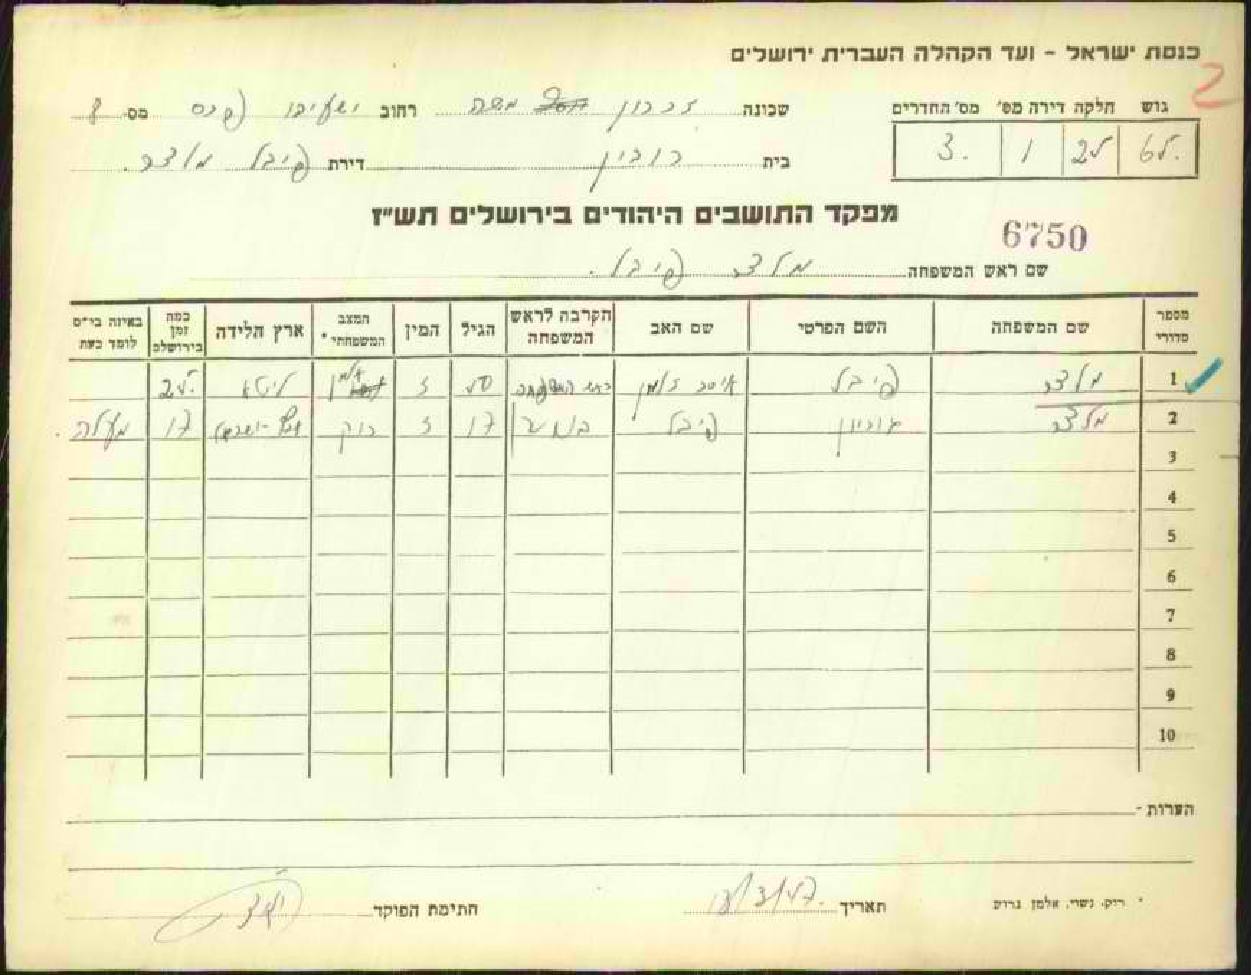 כנסת ישראל - ועד הקהלה העברית ירושלים
גוש חלקה דירה מס' מס' החדרים
1 3.
שכונה זכרון משה רחוב ישעיהו פרס מס. 8
בית רובין דירת פיבל מלצר.
מפקד התושבים היהודים בירושלים תש"ז
6750
שם ראש המשפחה מלצר פיבל.
מספר סדורי שם המשפחה השם הפרטי שם האב הקרבה לראש המשפחה הגיל המין המצב המשפחתי * ארץ הלידה כמה זמן בירושלם באיזה בי"ס לומד כעת
1 מלצר פיבל איסר זלמן ראש המשפחה ז אלמן ליטא
2 מלצר פיבל 17 ז רוק 17 מעלה.
3
4
5
6
7
8
9
10
הערות -
* ריק, נשוי, אלמן גרוש
תאריך
חתימת הפוקד